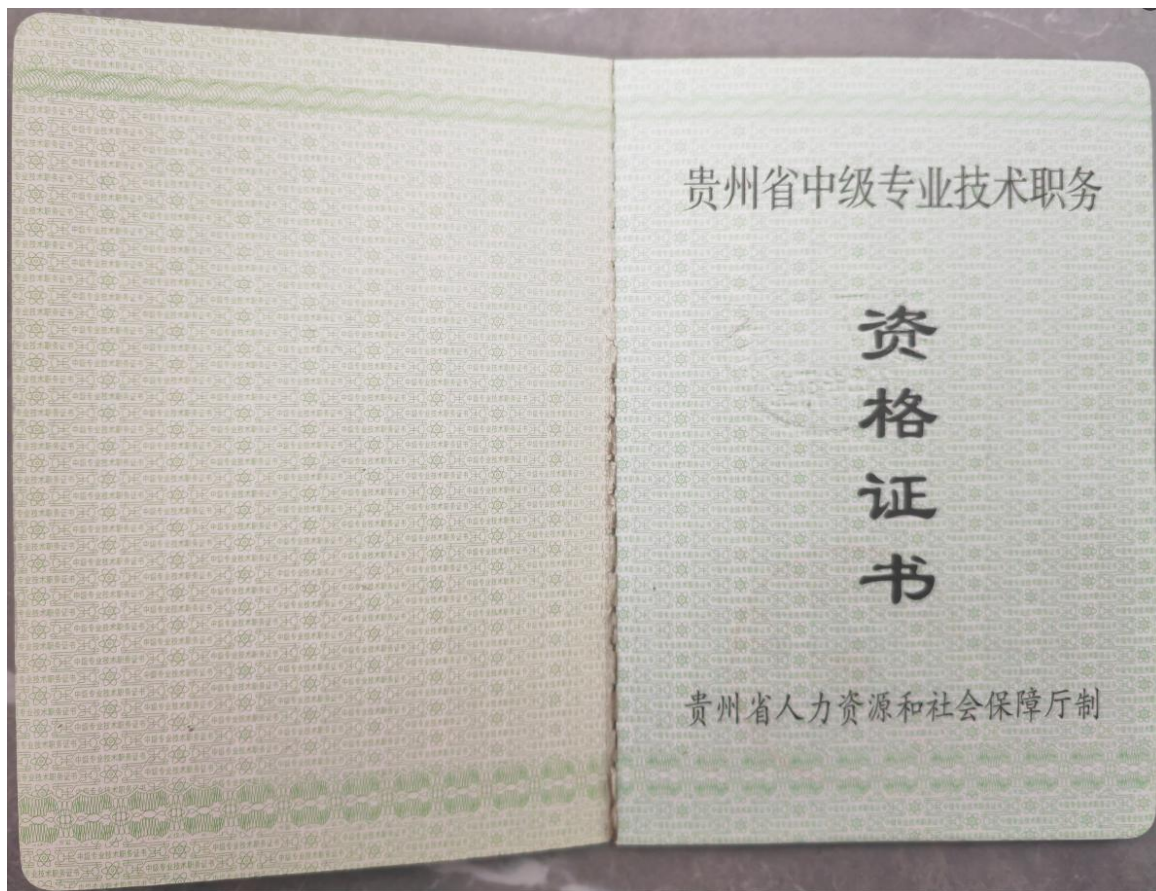 贵州省中级专业技术职务
资
格
证
书
贵州省人力资源和社会保障厅制